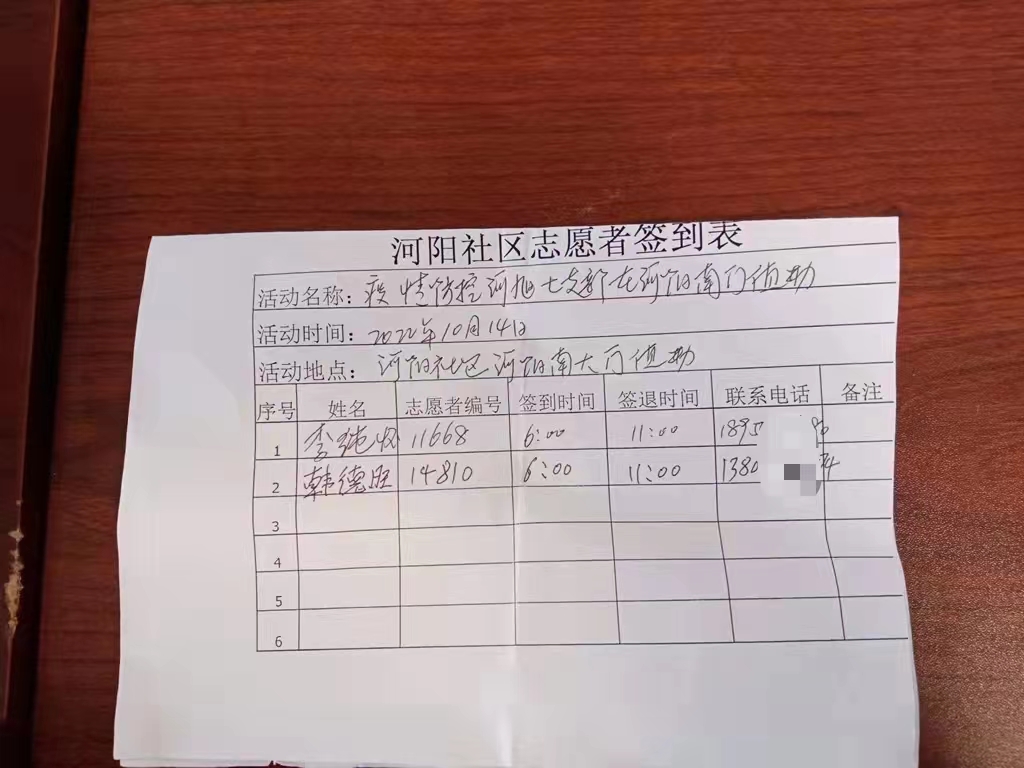 河阳社区志愿者签到表
活动名称：疫情防控河旭七支部在河阳南门值勤
活动时间：2022年10月14日
活动地点：河阳社区河阳南大门值勤
序号 姓名 志愿者编号 签到时间 签退时间 联系电话 备注
1 李 11668 6:00 11:00
2 韩德旺 14810 6:00 11:00 1380
3
4
5
6